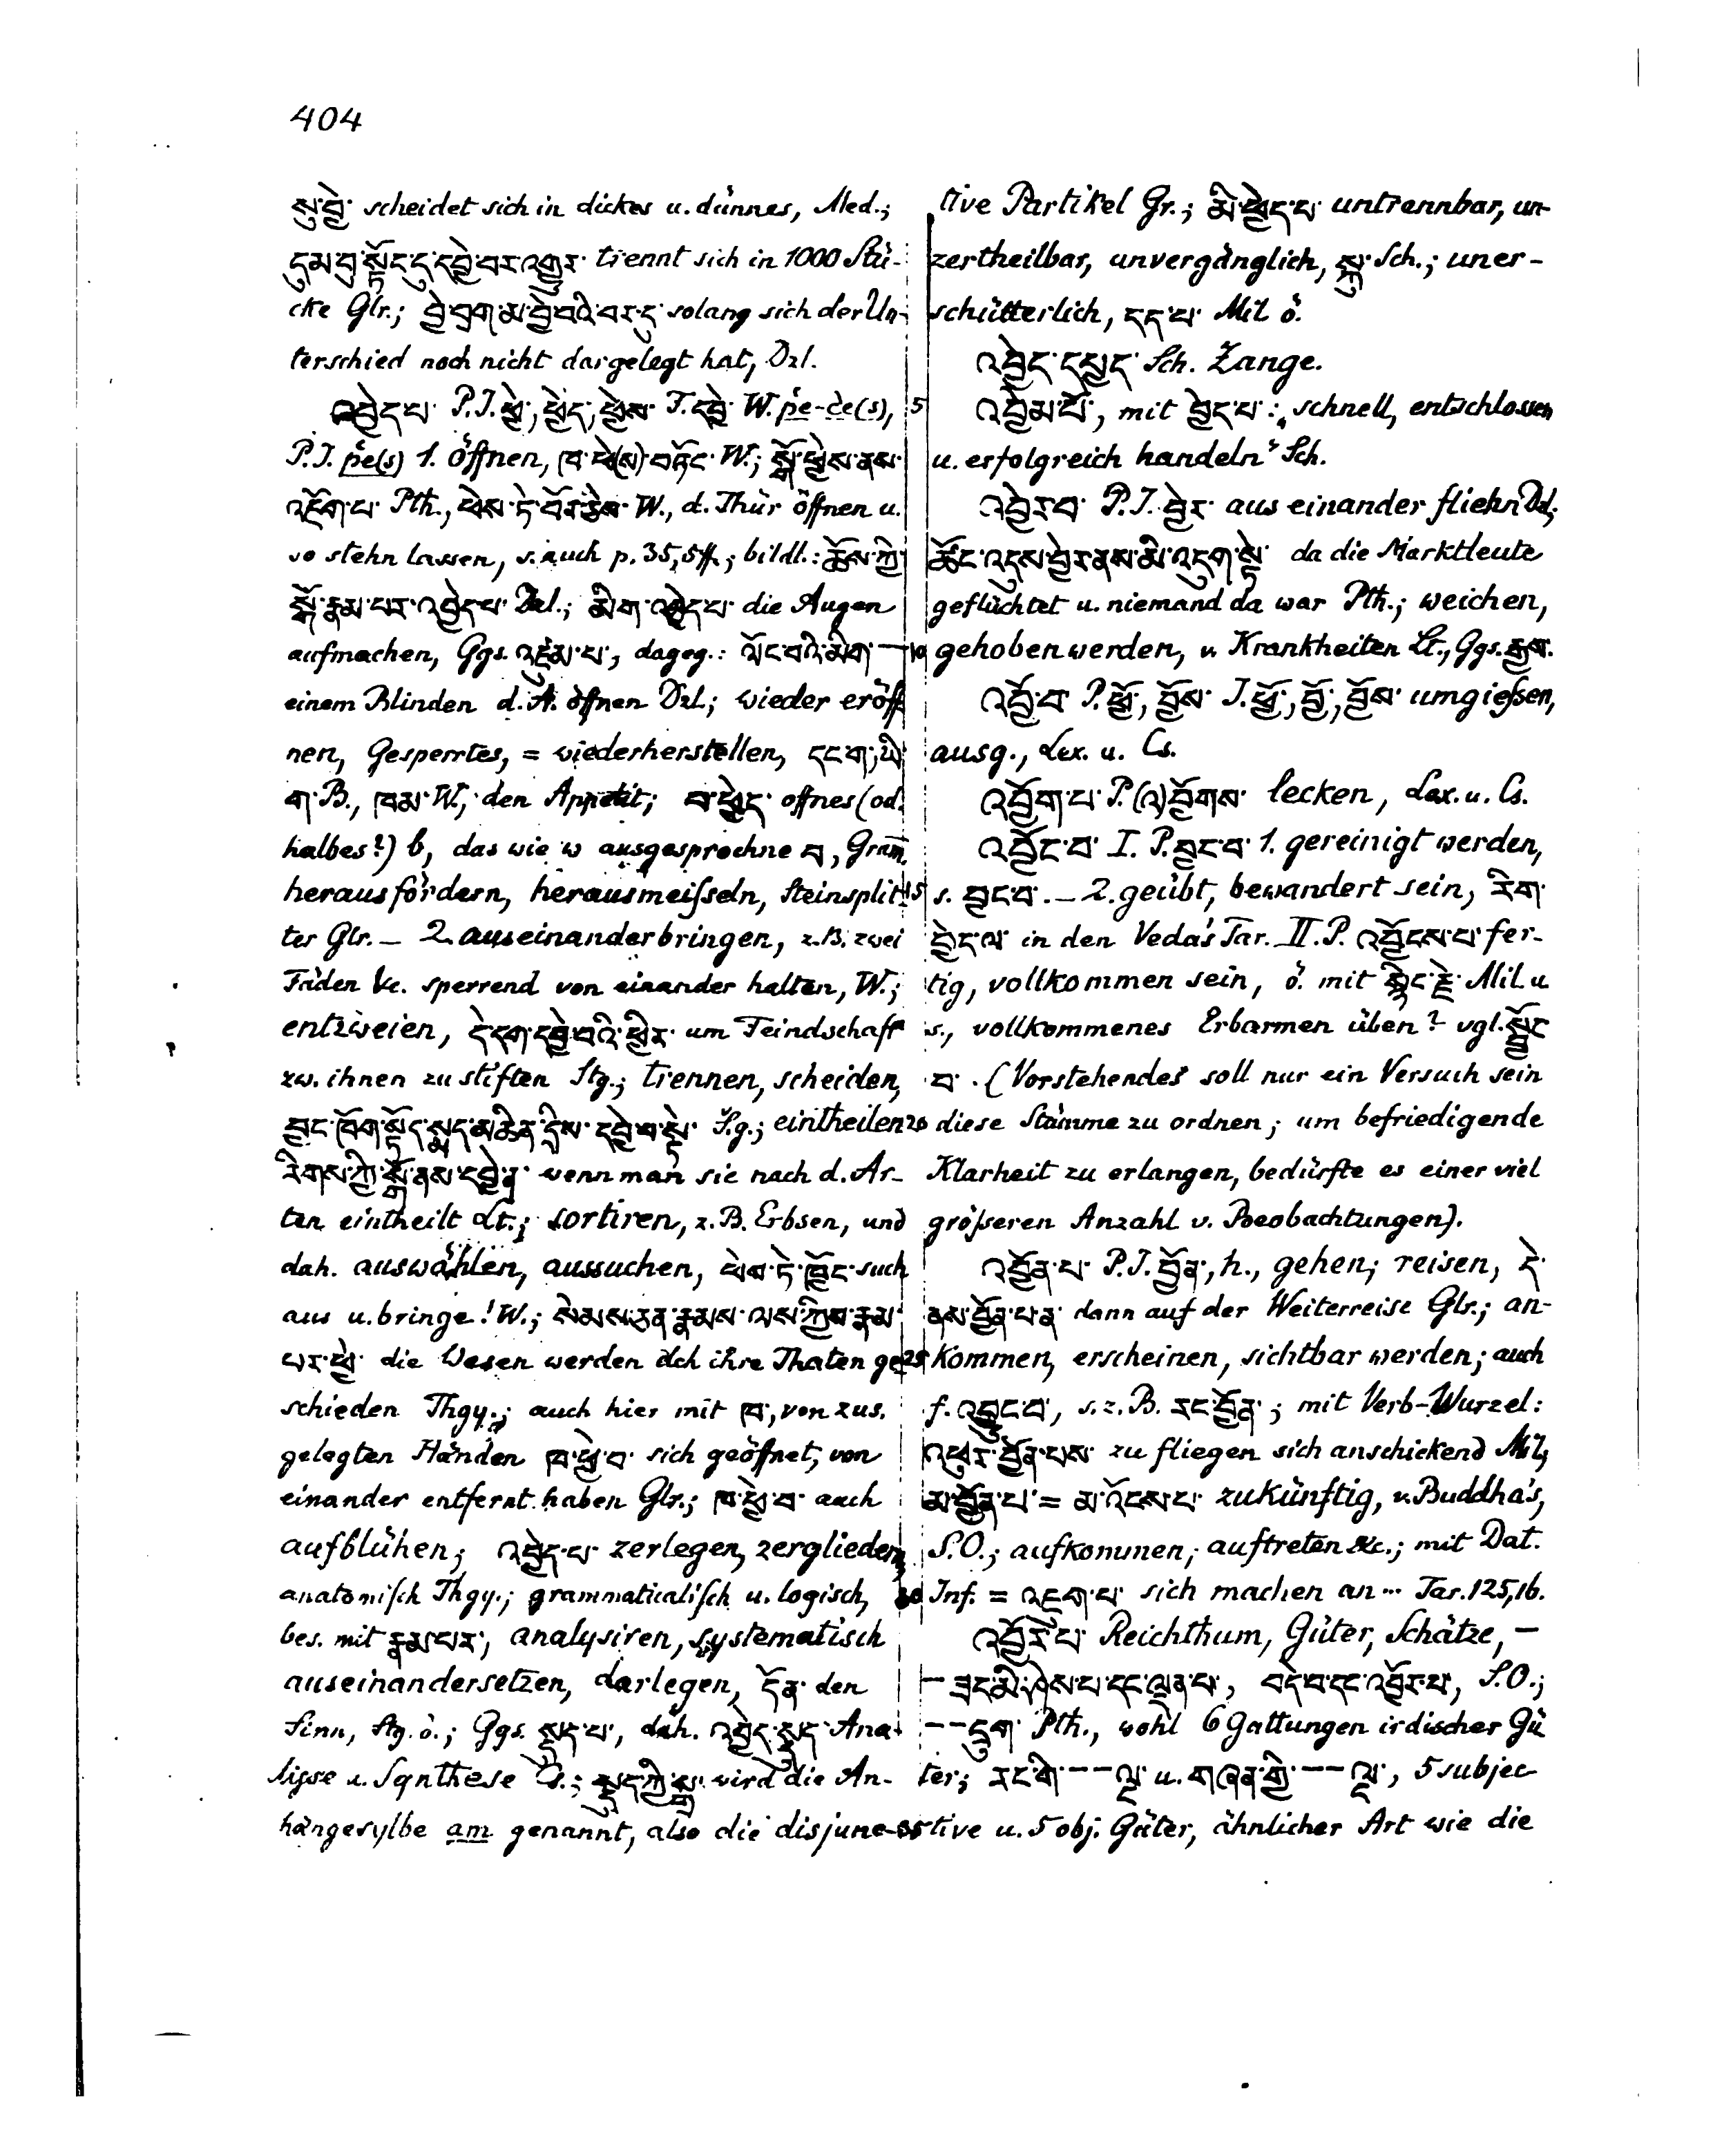 404
སུ་བྱེ་ scheidet sich in dickes u. dünnes, Med.;
དུམ་བུ་སྟོང་དུ་དབྱེ་བར་འགྱུར་ trennt sich in 1000 Stü-
cke Glr.; བྱེ་བྲག་མ་བྱེ་བའི་བར་དུ་ solang sich der Un-
terschied noch nicht dargelegt hat, Dzl.
འབྱེད་པ་ P.I. ཕྱེ་, ཕྱེད་, ཕྱེས་ F. དབྱེ་ W. pe-če(s),
P.I. pe(s) 1. öffnen, ཁ་ཕྱེ(ས)་བཏོང་ W.; སྒོ་ཕྱེས་ནས་
འཇོག་པ་ Pth., ཕེས་ཏེ་བོར་ W., d. Thür öffnen u.
so stehn lassen, s. auch p. 35, 5ff.; bildl.: ཆོས་ཀྱི་
སྒོ་རྣམ་པར་འབྱེད་པ་ Dzl.; མིག་འབྱེད་པ་ die Augen
aufmachen, Ggs. འཛུམ་པ་, dageg.: ལོང་བའི་མིག་ —
einem Blinden d. A. öffnen Dzl.; wieder eröff
nen, Gesperrtes, = wiederherstellen, དང་ག་, ཡི་
ག་ B., ཁམ་ W., den Appetit; བ་ཕྱེད་ offnes (od.
halbes?) b, das wie w ausgesprochne བ, Gram.
herausfördern, herausmeiſseln, Steinsplit-
ter Glr. — 2. auseinanderbringen, z.B. zwei
Fäden &c. sperrend von einander halten, W.;
entzweien, དེ་དག་དབྱེ་བའི་ཕྱིར་ um Feindschaft
zw. ihnen zu stiften Stg.; trennen, scheiden,
བྱང་ཁོག་སྟོད་སྨད་མཆིན་དྲིས་དབྱེ་བ་སྟེ་ S.g.; eintheilen
རིགས་ཀྱི་སྒོ་ནས་དབྱེ་ན་ wenn man sie nach d. Ar-
ten eintheilt Lt.; sortiren, z.B. Erbsen, und
dah. auswählen, aussuchen, ཕེས་ཏེ་ཁྱོང་ such
aus u. bringe! W.; སེམས་ཅན་རྣམས་ལས་ཀྱིས་རྣམ་
པར་ཕྱེ་ die Wesen werden dch ihre Thaten ge-
schieden Thgy.; auch hier mit ཁ་, von zus.
gelegten Händen ཁ་ཕྱེ་བ་ sich geöffnet, von
einander entfernt haben Glr.; ཁ་ཕྱེ་བ་ auch
aufblühen; འབྱེད་པ་ zerlegen, zergliedern,
anatomiſch Thgy.; grammaticaliſch u. logisch,
bes. mit རྣམ་པར་, analysiren, systematisch
auseinandersetzen, darlegen, དོན་ den
Sinn, Stg. ö.; Ggs. སྡུད་པ་, dah. འབྱེད་སྡུད་ Ana-
lisse u. Synthese Cs.; སྡུད་ཀྱི་སྒྲ་ wird die An-
hängesylbe am genannt, also die disjunc-
tive Partikel Gr.; མི་ཕྱེད་པ་ untrennbar, un-
zertheilbar, unvergänglich, སྐུ་ Sch.; uner-
schütterlich, དད་པ་ Mil ö.
འབྱེད་དཔྱད་ Sch. Zange.
5 འབྱེམ་པོ་, mit བྱེད་པ་: „schnell, entschlossen
u. erfolgreich handeln" Sch.
འབྱེར་བ་ P.I. བྱེར་ aus einander fliehn Dzl.;
ཚོང་འདུས་བྱེར་ནས་མི་འདུག་སྟེ་ da die Marktleute
geflüchtet u. niemand da war Pth.; weichen,
10 gehoben werden, v. Krankheiten Lt., Ggs. རྒྱས་.
འབྱོ་བ་ P. ཕྱོ་, བྱོས་ I. ཕྱོ་, བྱོ་, བྱོས་ umgieſsen,
ausg., Lex. u. Cs.
འབྱོག་པ་ P. (འ)བྱོགས་ lecken, Lex. u. Cs.
འབྱོང་བ་ I. P. བྱང་བ་ 1. gereinigt werden,
15 s. བྱང་བ་. — 2. geübt, bewandert sein, རིག་
བྱེད་ལ་ in den Veda's Tar. II. P. འབྱོངས་པ་ fer-
tig, vollkommen sein, ö. mit སྙིང་རྗེ་ Mil. u
s., vollkommenes Erbarmen üben? vgl. སྦྱོང་
བ་. (Vorstehendes soll nur ein Versuch sein
20 diese Stämme zu ordnen; um befriedigende
Klarheit zu erlangen, bedürfte es einer viel
gröſseren Anzahl v. Beobachtungen).
འབྱོན་པ་ P.I. བྱོན་, h., gehen; reisen, དེ་
ནས་བྱོན་པ་ན་ dann auf der Weiterreise Glr.; an-
25 kommen, erscheinen, sichtbar werden; auch
f. འབྱུང་བ་, s.z.B. རང་བྱོན་; mit Verb-Wurzel:
འཕུར་བྱོན་པས་ zu fliegen sich anschickend Mil.;
མ་བྱོན་པ་ = མ་འོངས་པ་ zukünftig, v. Buddha's,
S.O.; aufkommen, auftreten &c.; mit Dat.
30 Inf. = འཇུག་པ་ sich machen an ... Tar. 125, 16.
འབྱོར་པ་ Reichthum, Güter, Schätze, —
— ཟད་མི་ཤེས་པ་དང་ལྡན་པ་, བདེ་བ་དང་འབྱོར་པ་, S.O.;
— — དྲུག་ Pth., wohl 6 Gattungen irdischer Gü
ter; རང་གི་ — — ལྔ་ u. གཞན་གྱི་ — — ལྔ་, 5 subjec
35 tive u. 5 obj. Güter, ähnlicher Art wie die